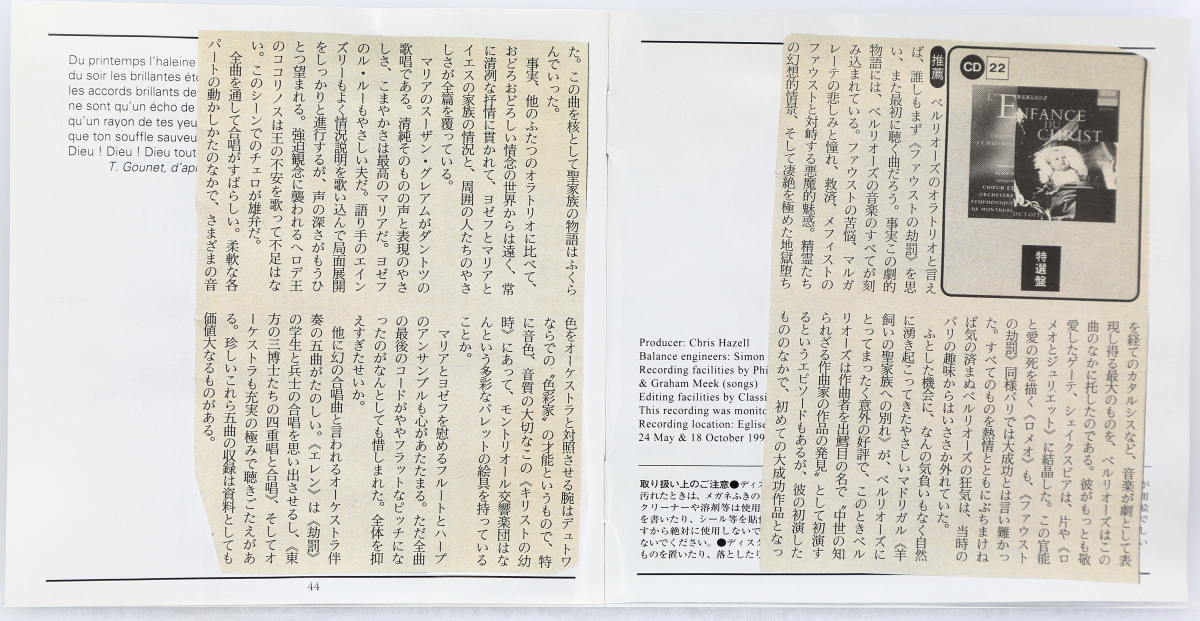 Du printemps l'haleine
du soir les brillantes
les accords brillants de
ne sont qu'un écho de
qu'un rayon de tes yeu
que ton souffle sauveu
Dieu ! Dieu ! Dieu tout
T. Gounet, d'apr
CD 22
BERLIOZ
ENFANCE
DU
CHRIST
CHŒUR ET
ORCHESTRE
SYMPHONIQUE
DE MONTREAL
DUTOIT
特選盤
推薦
ベルリオーズのオラトリオと言え
ば、誰しもまず《ファウストの劫罰》を思
い、また最初に聴く曲だろう。事実この劇的
物語には、ベルリオーズの音楽のすべてが刻
み込まれている。ファウストの苦悩、マルガ
レーテの悲しみと憧れ、救済、メフィストの
ファウストと対峙する悪魔的魅惑。精霊たち
の幻想的情景、そして凄絶を極めた地獄堕ち
を経てのカタルシスなど、音楽が劇として表
現し得る最大のものを、ベルリオーズはこの
曲のなかに托したのである。彼がもっとも敬
愛したゲーテ、シェイクスピアは、片や《ロ
メオとジュリエット》に結晶した。この官能
と愛の死を描く《ロメオ》も、《ファウスト
の劫罰》同様パリでは大成功とは言い難かっ
た。すべてのものを熱情とともにぶちまけね
ば気の済まぬベルリオーズの狂気は、当時の
パリの趣味からはいささか外れていた。
ふとした機会に、なんの気負いもなく自然
に湧き起こってきたやさしいマドリガル《羊
飼いの聖家族への別れ》が、ベルリオーズに
とってまったく意外の好評で、このときベル
リオーズは作曲者を出鱈目の名で〝中世の知
られざる作曲家の作品の発見〟として初演す
るというエピソードもあるが、彼の初演した
もののなかで、初めての大成功作品となっ
た。この曲を核として聖家族の物語はふくら
んでいった。
事実、他のふたつのオラトリオに比べて、
おどろおどろしい情念の世界からは遠く、常
に清冽な抒情に貫かれて、ヨゼフとマリアと
イエスの家族の情況と、周囲の人たちのやさ
しさが全篇を覆っている。
マリアのスーザン・グレアムがダントツの
歌唱である。清純そのものの声と表現のやさ
しさ、こまやかさは最高のマリアだ。ヨゼフ
のル・ルーもやさしい夫だ。語り手のエイン
ズリーもよく情況説明を歌い込んで局面展開
をしっかりと進行するが、声の深さがもうひ
とつ望まれる。強迫観念に襲われるヘロデ王
のココリノスは王の不安を歌って不足はな
い。このシーンでのチェロが雄弁だ。
全曲を通して合唱がすばらしい。柔軟な各
パートの動かしかたのなかで、さまざまの音
色をオーケストラと対照させる腕はデュトワ
ならでの〝色彩家〟の才能というもので、特
に音色、音質の大切なこの《キリストの幼
時》にあって、モントリオール交響楽団はな
んという多彩なパレットの絵具を持っている
ことか。
マリアとヨゼフを慰めるフルートとハープ
のアンサンブルも心があたたまる。ただ全曲
の最後のコードがややフラットなピッチにな
ったのがなんとしても惜しまれた。全体を抑
えすぎたせいか。
他に幻の合唱曲と言われるオーケストラ伴
奏の五曲がたのしい。《エレン》は《劫罰》
の学生と兵士の合唱を思い出させるし、《東
方の三博士たちの四重唱と合唱》、そしてオ
ーケストラも充実の極みで聴きごたえがあ
る。珍しいこれら五曲の収録は資料としても
価値大なるものがある。
Producer: Chris Hazell
Balance engineers: Simon
Recording facilities by Phi
& Graham Meek (songs)
Editing facilities by Classi
This recording was monito
Recording location: Eglise
24 May & 18 October 199
取り扱い上のご注意●ディス
汚れたときは、メガネふきの
クリーナーや溶剤等は使用
を書いたり、シール等を貼
すから絶対に使用しないで
ないでください。●ディスク
ものを置いたり、落としたり
44